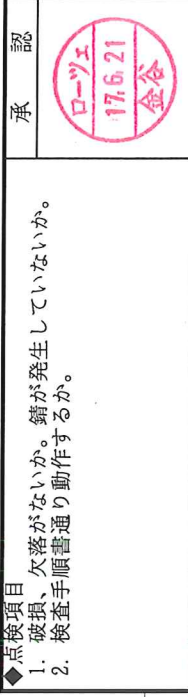 ◆点検項目
1. 破損、欠落がないか。錆が発生していないか。
2. 検査手順書通り動作するか。
承 認
ローツェ
17.6.21
金谷